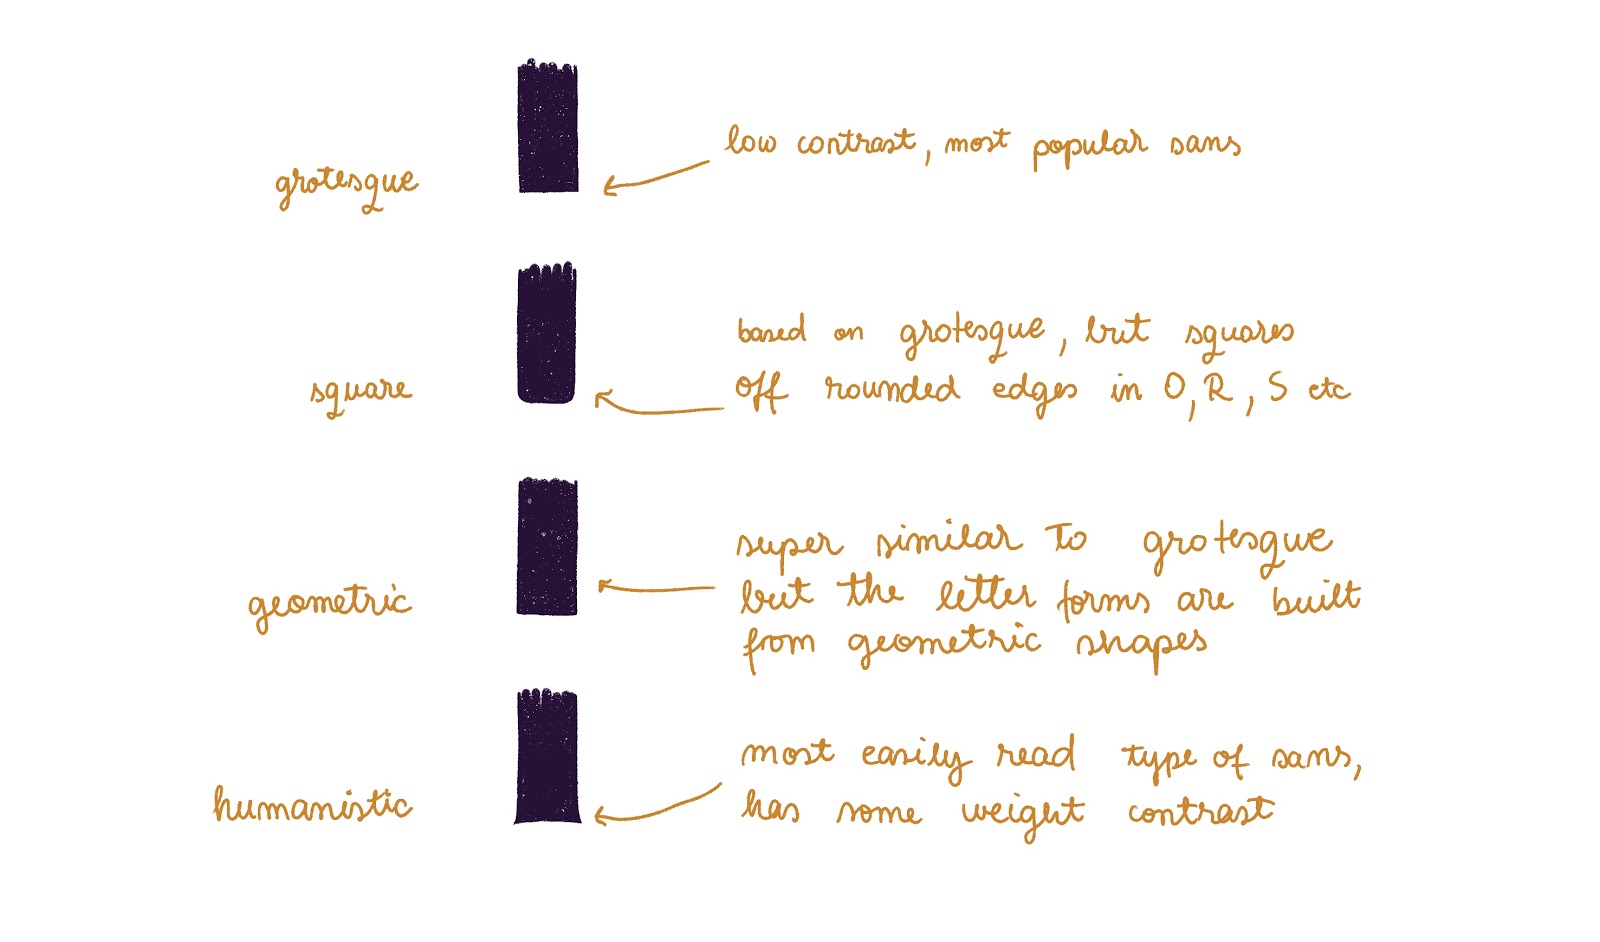 grotesque
low contrast, most popular sans
square
based on grotesque, but squares
off rounded edges in O, R, S etc
geometric
super similar to grotesque
but the letter forms are built
from geometric shapes
humanistic
most easily read type of sans,
has some weight contrast